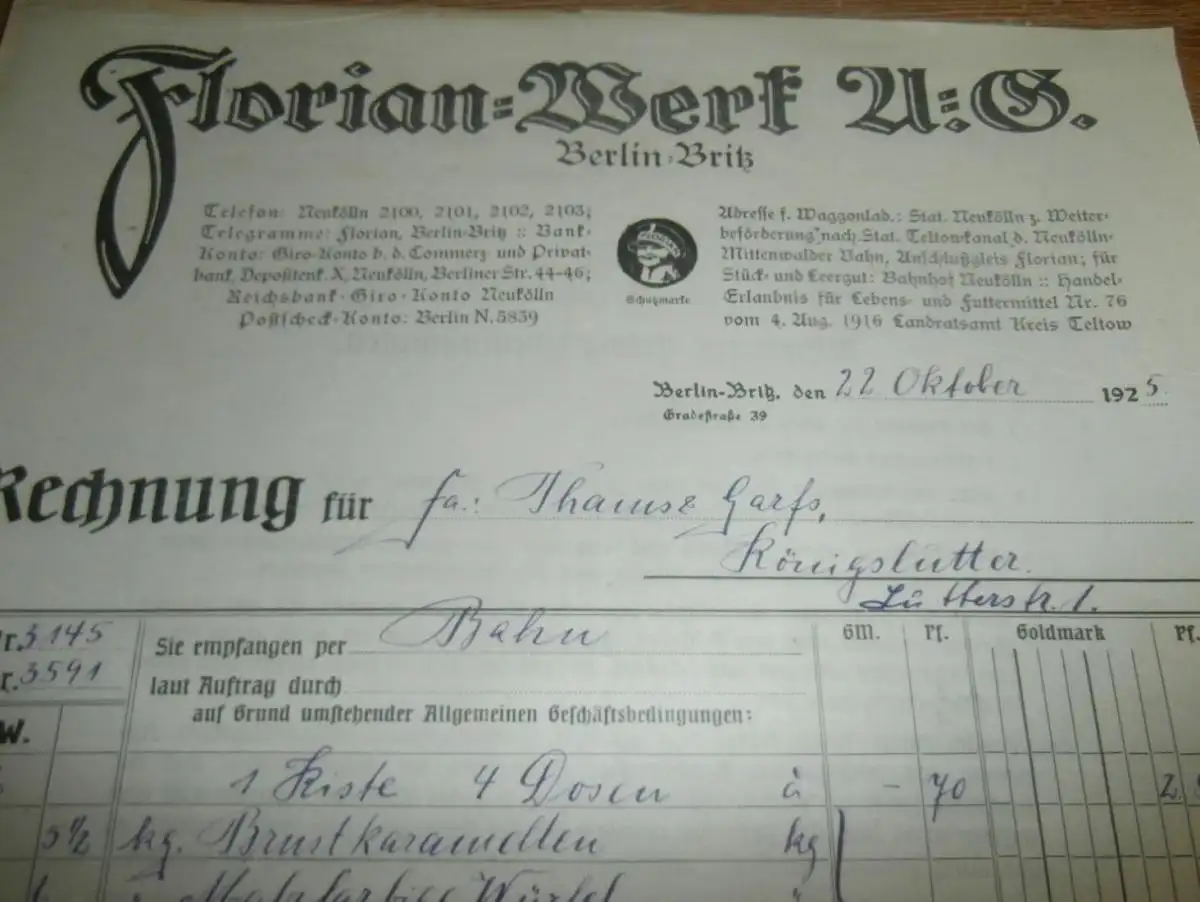 Florian-Werk A.-G.
Berlin-Britz
Telefon: Neukölln 2100, 2101, 2102, 2103;
Telegramme: Florian, Berlin-Britz :: Bank-
Konto: Giro-Konto b. d. Commerz und Privat-
bank, Depositenk. X, Neukölln, Berliner Str. 44-46;
Reichsbank-Giro-Konto Neukölln
Postscheck-Konto: Berlin N. 5839
FLORIAN
Schutzmarke
Adresse f. Waggonlad.: Stat. Neukölln z. Weiter-
beförderung nach Stat. Teltowkanal d. Neukölln-
Mittenwalder Bahn, Anschlußgleis Florian; für
Stück- und Leergut: Bahnhof Neukölln :: Handel-
Erlaubnis für Lebens- und Futtermittel Nr. 76
vom 4. Aug. 1916 Landratsamt Kreis Teltow
Berlin-Britz, den 22 Oktober 1925.
Gradestraße 39
Rechnung für Fa.: Garfs,
Königslutter.
Lutterstr. 1.
Nr. 3145
Nr. 3591
Sie empfangen per Bahn
laut Auftrag durch
auf Grund umstehender Allgemeinen Geschäftsbedingungen:
GM. Pf. Goldmark Pf.
W.
1 Kiste 4 Dosen à – 70 2
5½ kg. Brustkaramellen kg
Würfel "